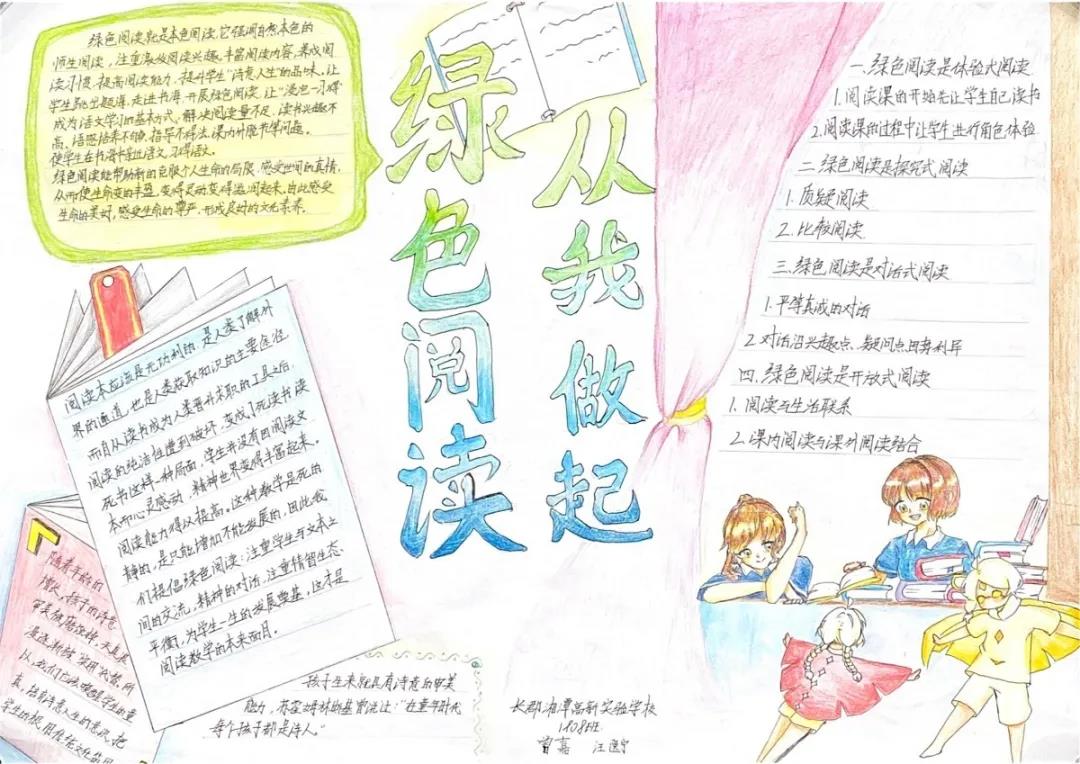 绿色阅读就是本色阅读,它强调自然本色的
原生阅读,注重激发阅读兴趣,丰富阅读内容,养成阅
读习惯,提高阅读能力,提升学生"诗意人生"的品味。让
学生驰出题海,走进书海,开展绿色阅读,让"浸泡—习得"
成为语文学习的基本方式。解决阅读量不足、读书兴趣不
高、语感培养不够、指导不得法、课内外脱节等问题。
使学生在书海中亲近语文,习得语文。
绿色阅读能帮助我们克服个人生命的局限,感受世间的真情,
从而使生命变的丰盈,变得灵动变得滋润起来,由此感受
生命的美好,感受生命的尊严,形成良好的文化素养。
绿色阅读
从我做起
阅读本应该是无功利的,是人类了解外
界的通道,也是人类获取知识的主要途径。
而自从读书成为人类晋升求职的工具之后,
阅读的纯洁性遭到破坏,变成了死读书读
死书这样一种局面,学生并没有因阅读文
本而心灵感动,精神世界变得丰富起来。
阅读能力得以提高。这种教学是死的
静的,是只能增加不能发展的,因此我
们提倡绿色阅读:注重学生与文本之
间的交流,精神的对话,注重情智生态
平衡,为学生一生的发展奠基,这才是
阅读教学的本来面目。
随着年龄的
增大,孩子的诗意
审美被磨蚀掉,天真
浪漫渐被"实用"代替,所
学生的根,用传统文化
孩子生来就具有诗意的审美
能力,苏霍姆林斯基曾说过:"在童年时代
每个孩子都是诗人"
长郡湘潭高新实验学校
1808班
一.绿色阅读是体验式阅读
1.阅读课的开始先让学生自己读书
2.阅读课的过程中让学生进行角色体验
二.绿色阅读是探究式阅读
1.质疑阅读
2.比较阅读
三.绿色阅读是对话式阅读
1.平等真诚的对话
2.对话沿兴趣点、疑问点
四.绿色阅读是开放式阅读
1.阅读与生活联系
2.课内阅读与课外阅读结合